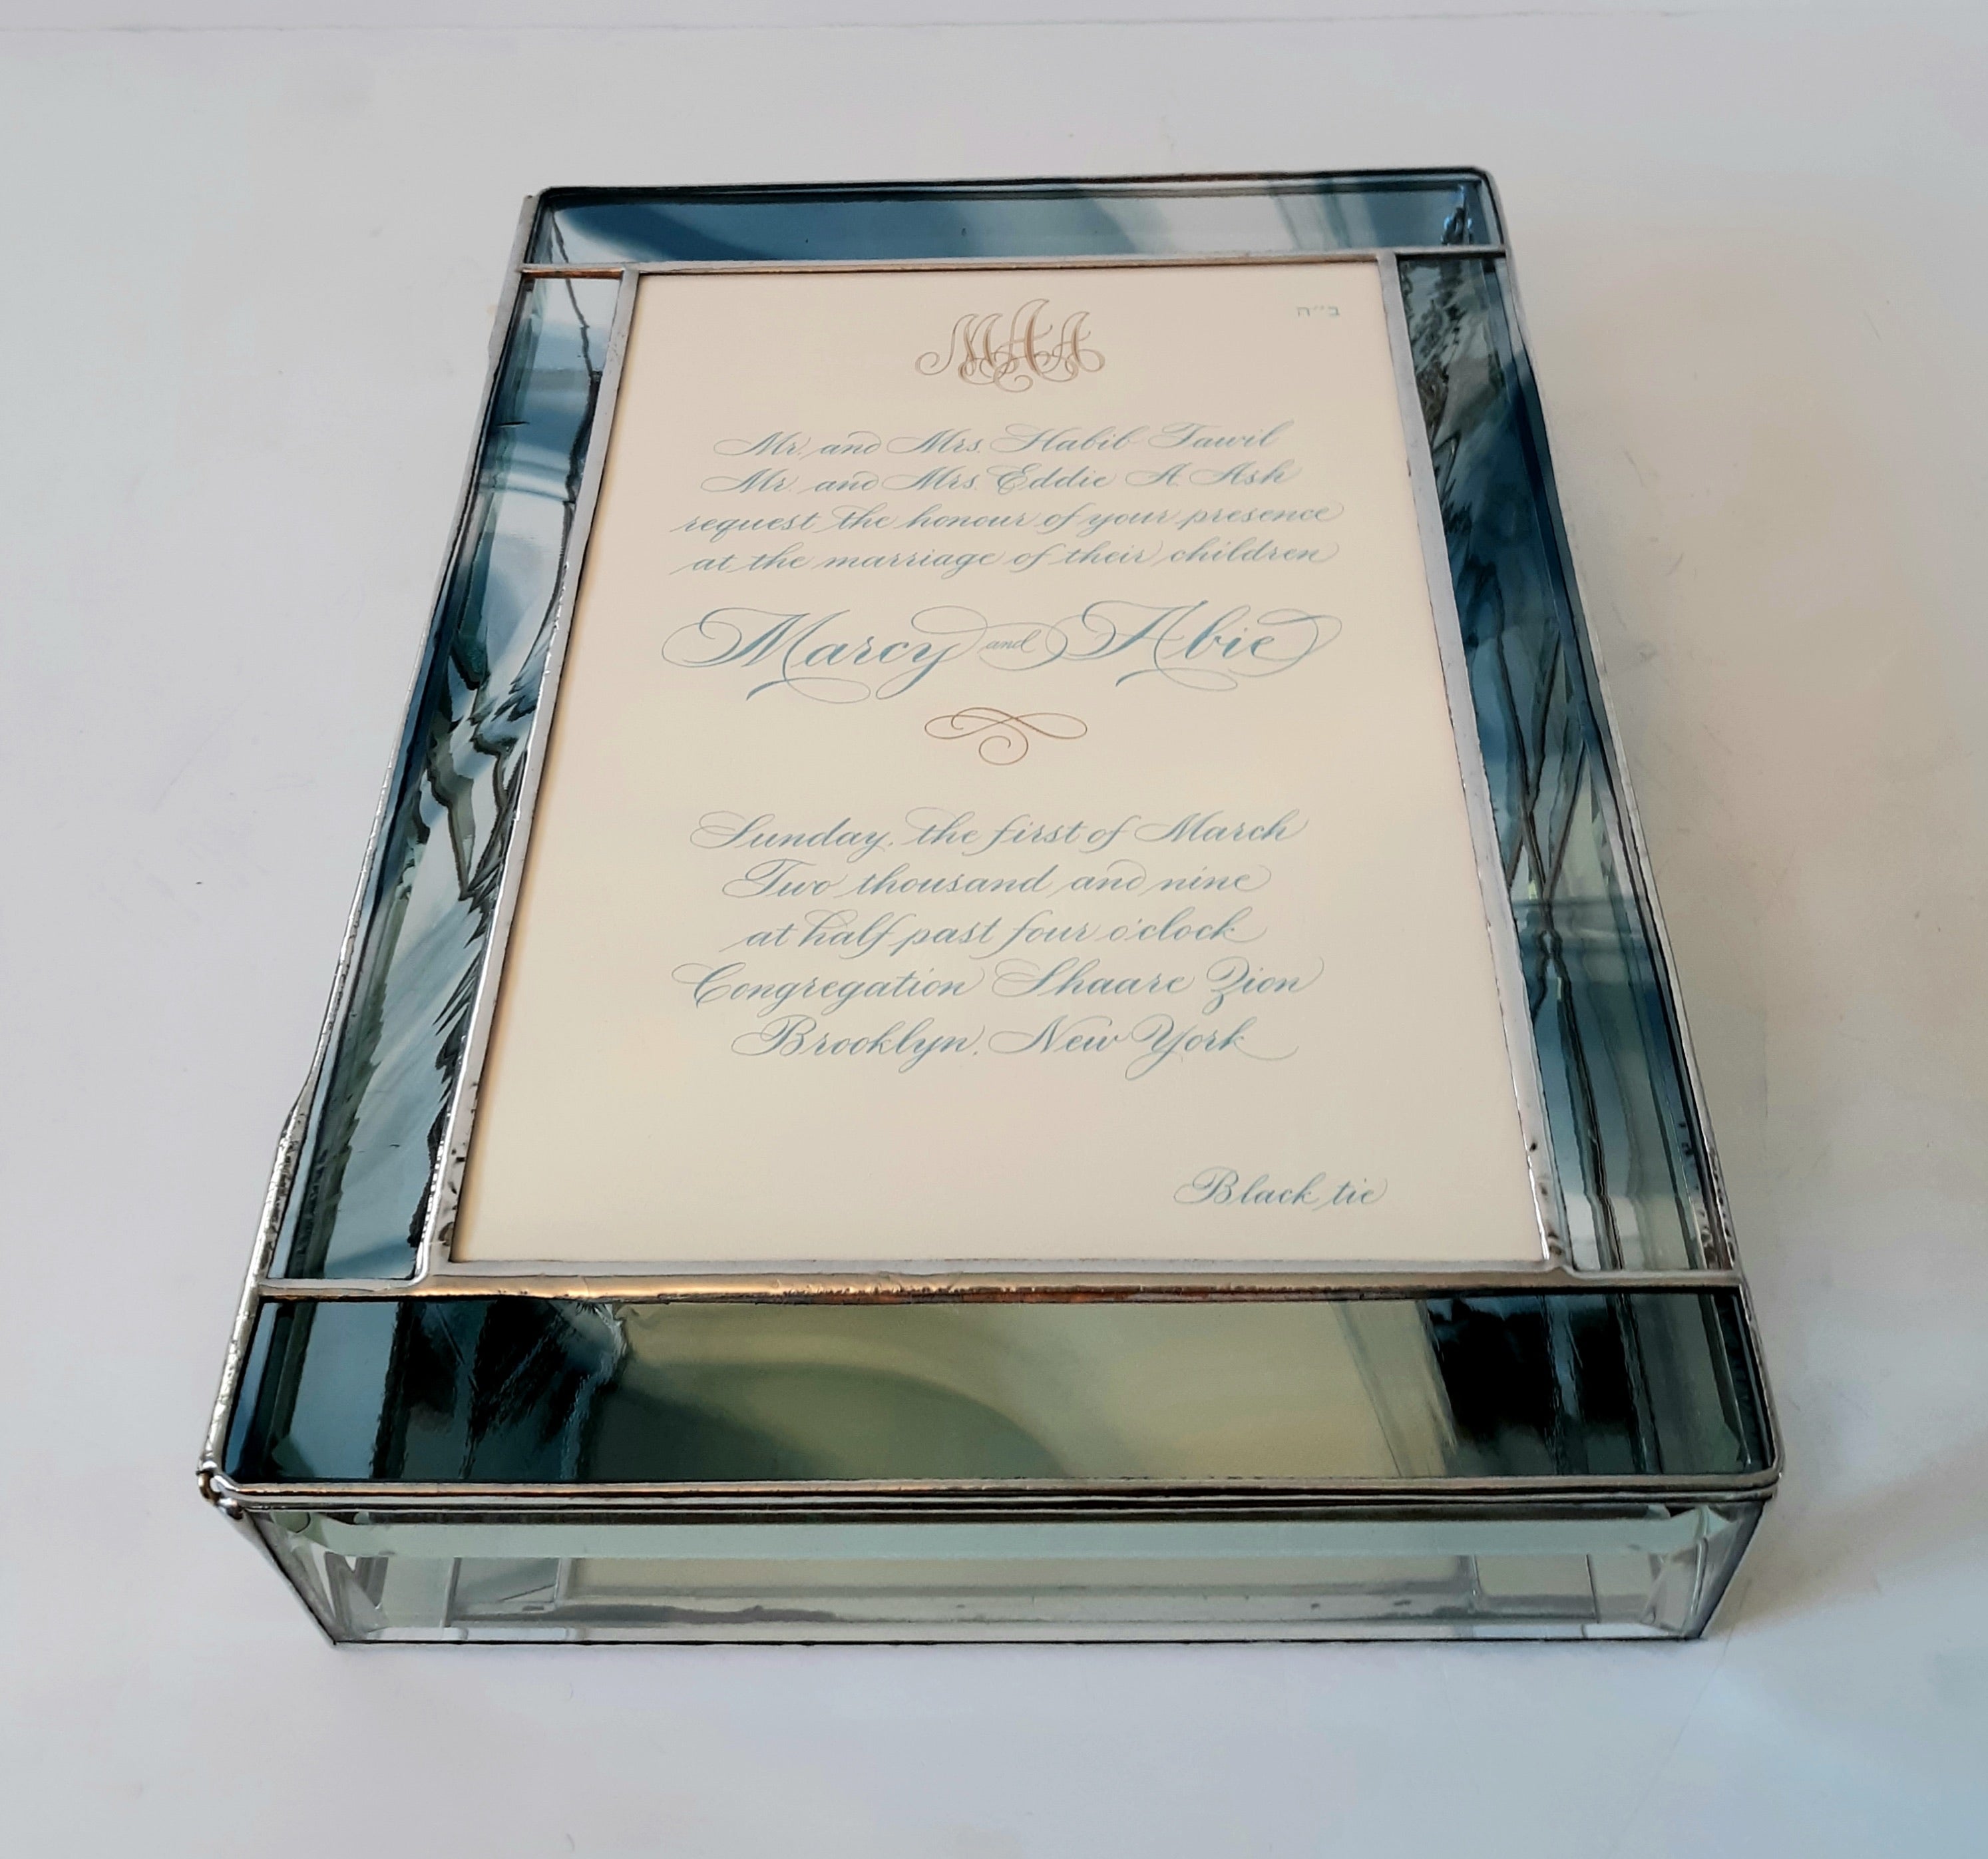 ב"ה
MAA
Mr. and Mrs. Habib Tawil
Mr. and Mrs. Eddie A. Ash
request the honour of your presence
at the marriage of their children
Marcy and Abie
Sunday, the first of March
Two thousand and nine
at half past four o'clock
Congregation Shaare Zion
Brooklyn, New York
Black tie